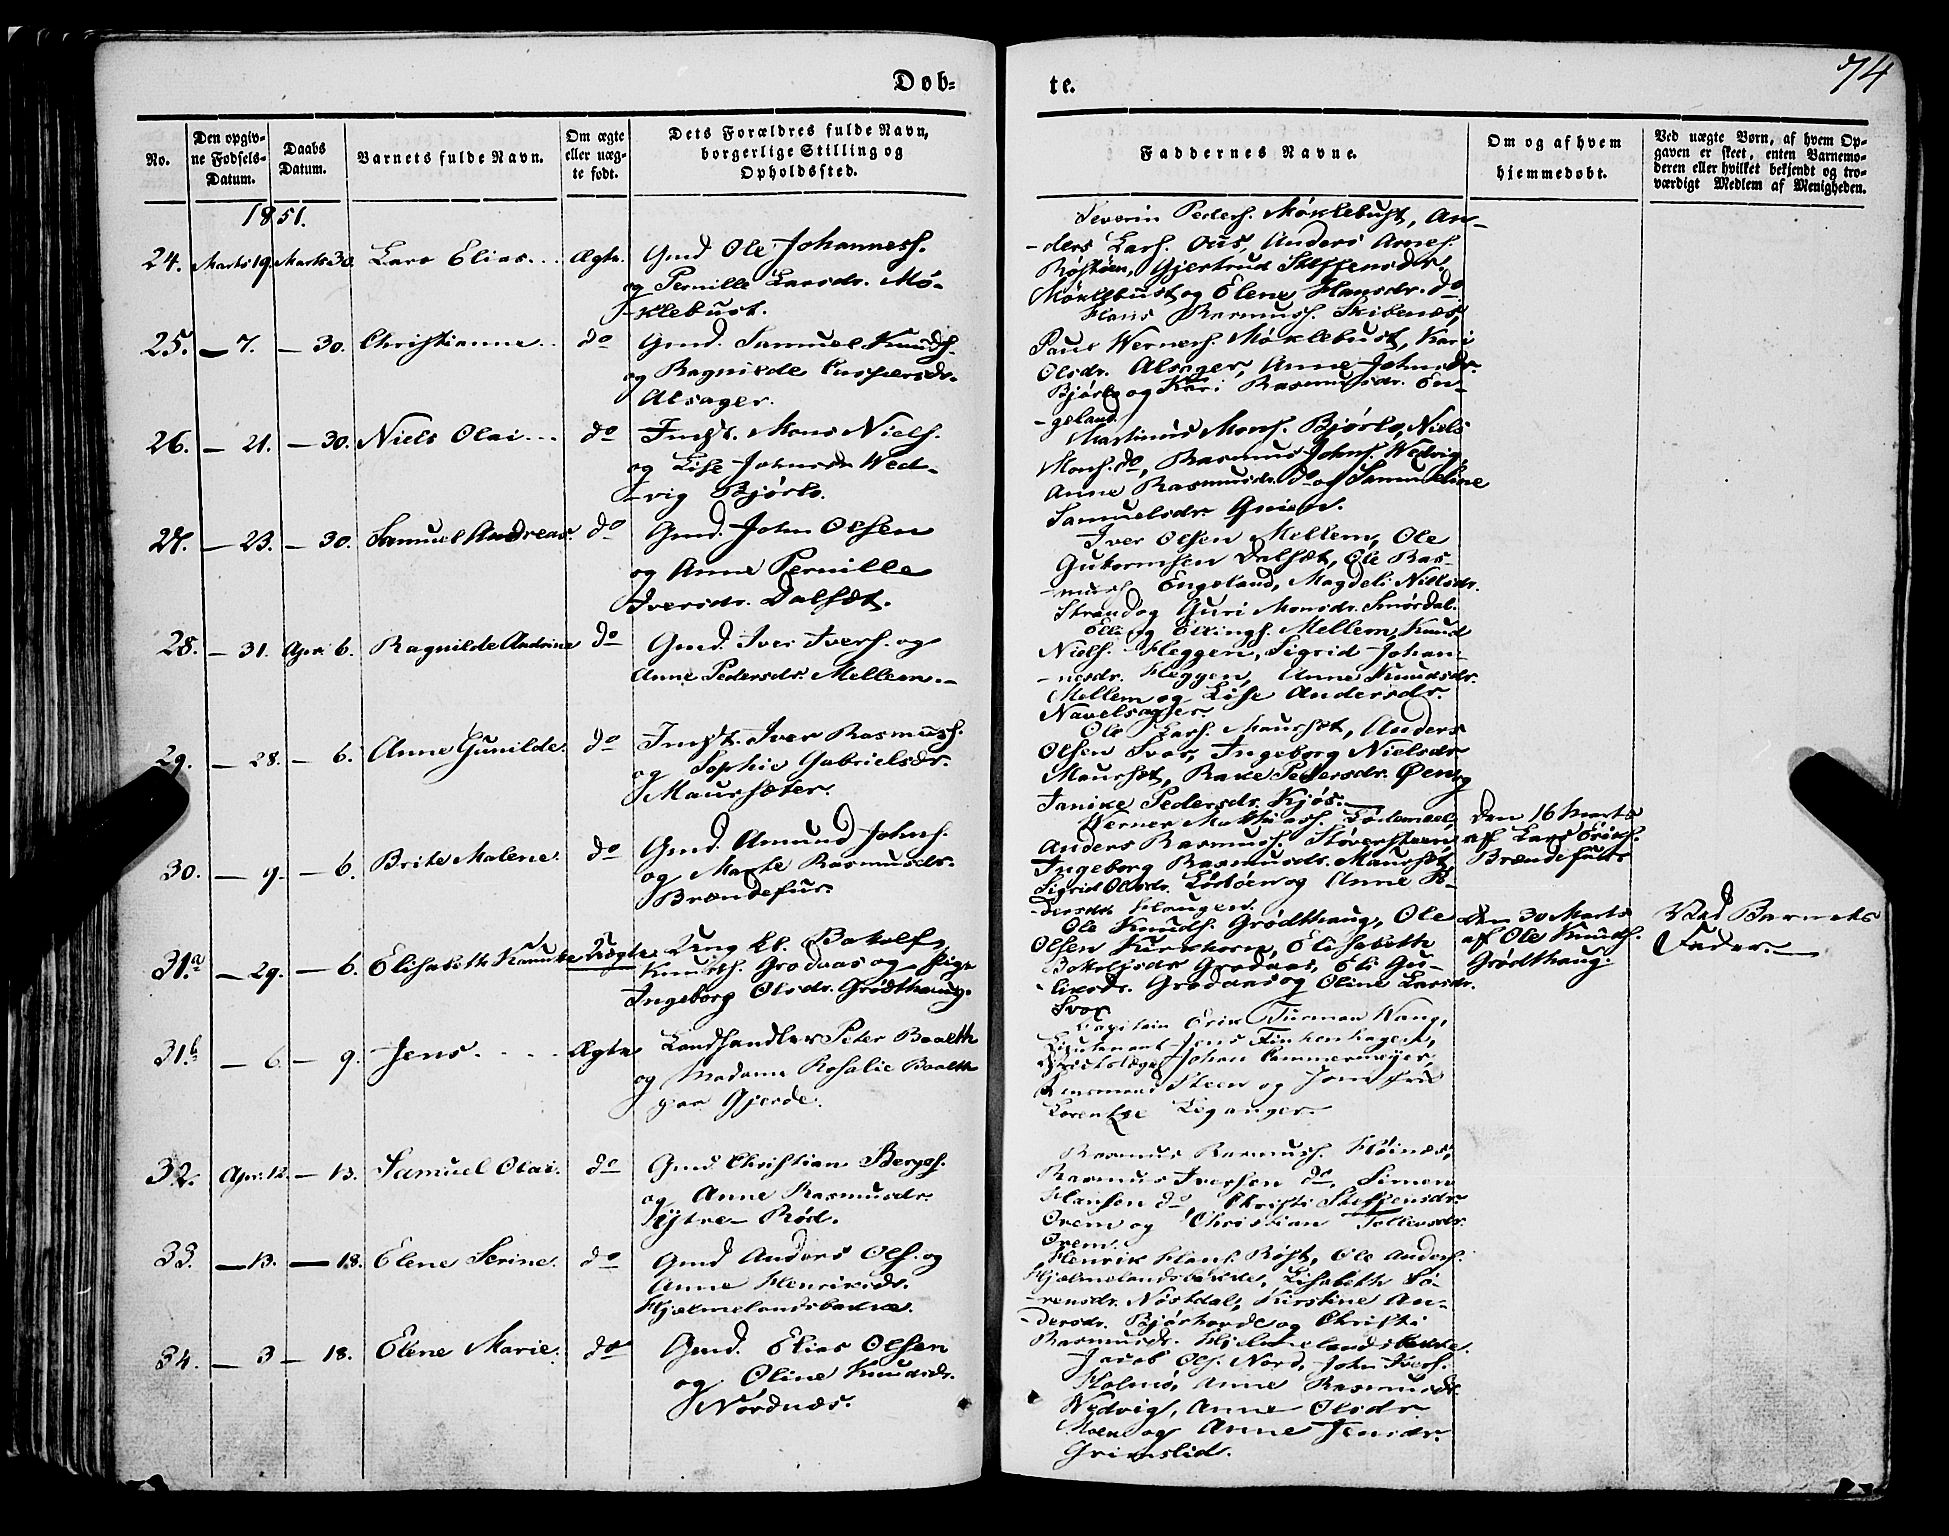 74
Døb=
te.
No.
Den opgiv-
ne Fødsels-
Datum.
Daabs
Datum.
Barnets fulde Navn.
Om ægte
eller uæg-
te født.
Dets Forældres fulde Navn,
borgerlige Stilling og
Opholdssted.
Faddernes Navne.
Om og af hvem
hjemmedøbt.
Ved uægte Børn, af hvem Op-
gaven er skeet, enten Barnemo-
deren eller hvilket bekjendt og tro-
værdigt Medlem af Menigheden.
1851.
24. Marts 19. Marts 30. Lars Elias... Ægte. Gmd Ole Johannesf.
og Pernille Larsdr. Mø-
klebust.
Severin Pedersf. Møklebust, An-
-ders Larsf. Aus, Anders Arnesf.
Gjertrud Steffensdr.
Møklebust og Elene Hansdr. do.
25. — 7. — 30. Christianne.. do Gmd. Samuel Knudsf.
og Ragnilde Caspersdr.
Alsager.
Hans Rasmusf. Skibenæs,
Paul Wernersf. Møklebust, Kari
Olsdr. Alsager, Anne Johnsdr.
Bjørlo og Kari Rasmusdr. En-
-geland.
26. — 21. — 30. Niels Olai... do Indst. Mons Nielsf.
og Lise Johnsdr. Wed-
-vig Bjørlo.
Martinus Monsf. Bjørlo, Niels
Monsf. do, Rasmus Johnsf. Wedvig,
Anne Rasmusdr. do og Samueline
Samuelsdr.
27. — 23. — 30. Samuel Andreas. do Gmd. John Olsen
og Anne Pernille
Iversdr. Dalsæt.
Iver Olsen Mellem, Ole
Guttormsen Dalsæt, Ole Ras-
-musf. Engeland, Magdeli Nielsdr.
Strand og Guri Monsdr. Smørdal.
28. — 31. Apr. 6. Ragnilde Andrine do Gmd. Iver Iversf. og
Anne Pedersdr. Mellem.—
Ellingsf. Mellem, Knud
Nielsf. Heggen, Sigrid Johan-
-nesdr. Heggen, Anne Knudsdr.
Mellem og Lise Andersdr.
Navelsager.
29. — 28. — 6. Anne Gunilde. do Indst. Iver Rasmusf.
og Sophie Gabrielsdr.
Maursæter.
Ole Larsf. Maursæt, Anders
Olsen Svor, Ingeborg Nielsdr.
Maursæt, Rake Pedersdr. Øen og
Janike Pedersdr. Kjøs.—
30. — 9. — 6. Brite Malene. do Gmd. Amund Johnsf.
og Marte Rasmusdr.
Brændefur.
Werner Mathiasf.
Anders Rasmusf. Støversteen,
Ingeborg Rasmusdr. Maursæt,
Sigrid Olsdr. og Anne Pe-
-dersdr. Haugen.
Den 16 Marts
af Lars Eriksf.
Brændefur.
31.a — 29. — 6. Elisabeth Knudte Uægte. Ung kl. Botolf
Knudsf. Grodaas og Pige
Ingeborg Olsdr. Grødthaug.
Ole Knudsf. Grødthaug, Ole
Olsen Kirkhorn, Elisabeth
Botolfsdr. Grodaas, Eli Gu-
-liksdr. Grodaas og Oline Larsdr.
Svor
Den 30 Marts
af Ole Knudsf.
Grødthaug.
Ved Barnets
Fader.—
31.b — 6. — 9. Jens.... Ægte Landhandler Peter Baalth
og Madame Rosalie Baalth
paa Gjerde.
Capitain Erik Turman Wang,
Lieutenant Jens Finkenhagen,
Distriktslæge Johan Cammermeyer,
Steen og Jomfrue
Lorentze Leganger.
32. Apr. 12. — 13. Samuel Olai. do Gmd Christian Bergsf.
og Anne Rasmusdr.
Ytre-Rød.
Rasmus Rasmusf. Høinæs,
Rasmus Iversen do, Simon
Hansen do Christi Steffensdr.
Orem og Christian Tollevsdr.
Orem.
33. — 13. — 18. Elene Serine. do Gmd Anders Olsf. og
Anne Henriksdr.
Hjelmelandsbakke.
Henrik Hansf. Røst, Ole Andersf.
Hjælmelandsbakke, Lisabeth Sø-
-rensdr. Nøstdal, Kirstine An-
-dersdr. og Christi
Rasmusdr. Hjelmelandsbakke.
34. — 3 — 18. Elene Marie. do Gmd. Elias Olsen
og Oline Knudsdr.
Nordnæs.
Jacob Olsf. Nord, John Iversf.
Holmø, Anne Rasmusdr.
Wedvig, Anne Olsdr.
Moen og Anne Jensdr.
Grimslid.